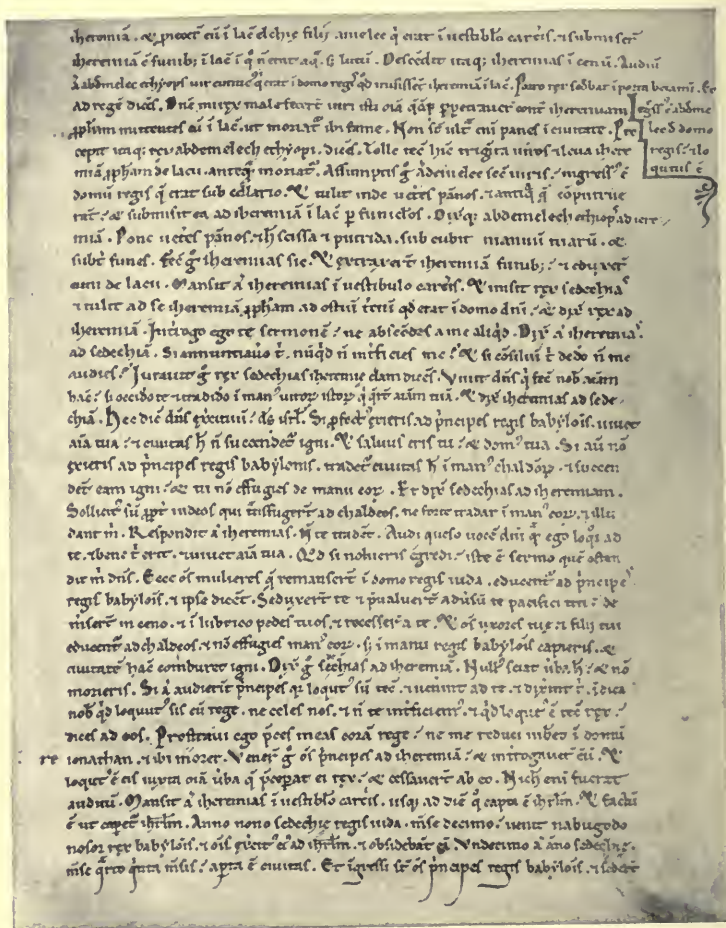 iheremiã. ⁊ proiecer̃ eũ ĩ lacũ elchie filii amelec q̇ erat ĩ uestiblo carc̃is. ⁊ submiser̃
iheremiã ẽ funib; ĩ lacũ ĩ q̊ ñ erat aq̃. s; lutũ. Descẽdit itaq; iheremias ĩ cenũ. Audiuit
ã abdmelec ethyops uir eunuc̃ q̇ erat ĩ domo regis qđ misissẽt iheremiã ĩ lacũ. Porro rex sedebat ĩ porta beiamĩ. Et
egss⁹ ẽ abdme
lec đ domo
regis ⁊ lo
qutus ẽ
ad regẽ dicẽs. Dñe mi rex malefecer̃t uiri isti oĩa q̃cũq; ppetauer̃ cont̃ iheremiam
ꝓpham mittentes eũ ĩ lacũ. ut moriat̃ ibi fame. Non sẽ ult̃ eni panes ĩ ciuitate. Pre
cepit itaq; rex abdemelech ethyopi. dicẽs. Tolle tecũ hĩc triginta uiros ⁊ leua ihere
miã ꝓpham de lacu. anteq̃ moriat̃. Assumptis g̊ abdemelec secũ uiris. ingress⁹ ẽ
domũ regis q̃ erat sub cellario. ⁊ tulit inde uet̃es pãnos. ⁊ antiq̃ q̃ cõputrue
rãt. ⁊ submisit ea ad iheremiã ĩ lacũ p funiclos. Dixq; abdemelech ethiop⁹ ad iere
miã. Pone uet̃es pãnos. ⁊ h̃ scissa ⁊ putrida. sub cubit̃ manuũ tuarũ. ⁊
sub funes. Fec̃ g̊ iheremias sic. ⁊ extraxer̃t iheremiã funib;. ⁊ eduxer̃t
eum de lacu. Mansit ã iheremias ĩ uestibulo carc̃is. ⁊ misit rex sedechias
⁊ tulit ad se iheremiã ꝓpham ad ostiũ t̃ciũ qđ erat ĩ domo dñi. ⁊ dix̃ rex ad
iheremiã. Int̃rogo ego te sermonẽ. ne abscõdes a me aliqđ. Dix̃ ã iheremias
ad sedechiã. Si annuntiau̾o t̃. nũqđ ñ int̃ficies me. ⁊ si cõsiliũ t̃ dedo ñ me
audies. Iurauit g̊ rex sedechias iheremie clam dicẽs. Viuit dñs q̇ fec̃ nob̃ aĩam
hãc. si occido te ⁊ tradido ĩ man⁹ uiroꝝ istoꝝ q̇ q̃rũt aĩam tuã. ⁊ dix̃ iheremias ad sede
chiã. Hec dic̃ dñs ex̃cituũ. đs isrł. Si ꝓfect⁹ exieris ad p̃ncipes regis babyłois. uiuet
aĩa tua. ⁊ ciuitas h̃ ñ succendet̃ igni. ⁊ saluus eris tu. ⁊ dom⁹ tua. Si aũ nõ
exieris ad p̃ncipes regis babylonis. tradet̃ ciuitas h̃ ĩ man⁹ chaldeoꝝ. ⁊ succen
dẽt eam igni. ⁊ tu nõ effugies de manu eoꝝ. Et dix̃ sedechias ad iheremiam.
Sollicit⁹ sũ ꝓpt̃ iudeos qui t̃nsfuger̃t ad chaldeos. ne forte tradar ĩ man⁹ eoꝝ. ⁊ illu
dant m̃. Respondit ã iheremias. Ñ te tradẽt. Audi queso uocẽ dñi q̃ ego loq̃r ad
te. ⁊ bene t̃ erit. ⁊ uiuet aĩa tua. Qđ si nolueris egredi. iste ẽ sermo quẽ osten
dit m̃ dñs. Ecce oẽs mulieres q̃ remanser̃t ĩ domo regis iuda. educent̃ ad p̃ncipes
regis babyłois. ⁊ ipse dicẽt. Seduxer̃t te ⁊ p̃ualuer̃t aduersũ te pacifici tui. de
merser̃t in ceno. ⁊ ĩ lubrico pedes tuos. ⁊ recesser̃t a te. ⁊ oẽs uxores tue ⁊ filii tui
educent̃ ad chaldeos. ⁊ nõ effugies man⁹ eoꝝ. s; ĩ manu regis babyłois capieris. ⁊
ciuitatẽ hãc comburet igni. Dix̃ g̊ sedechias ad iheremiã. Null⁹ sciat ũba h̃. ⁊ nõ
morieris. Si ã audierĩt p̃ncipes q̃ loqut⁹ sũ tecũ. ⁊ uenerĩt ad te. ⁊ dixerĩt t̃. ĩdica
nob̃ qđ loqut⁹ sis cũ rege. ne celes nos. ⁊ ñ te int̃ficiem⁹. ⁊ qđ loqut⁹ ẽ tecũ rex.
dices ad eos. Prostraui ego p̃ces meas corã rege. ne me reduci iubẽt ĩ domũ
re ionathan. ⁊ ibi morer. Vener̃t g̊ oẽs p̃ncipes ad iheremiã. ⁊ int̃rogauer̃t eũ. ⁊
loqut⁹ ẽ eis iuxta oĩa ũba q̃ p̃cep̃at ei rex. ⁊ cessauer̃t ab eo. Nich̃ eni fuerat
auditũ. Mansit ã iheremias ĩ uestibło carc̃is. usq; ad diẽ q̊ capta ẽ ihrłm. ⁊ factũ
ẽ ut capet̃ ihrłm. Anno nono sedechie regis iuda. mẽse decimo. uenit nabugodo
nosor rex babyłois. ⁊ oĩs ex̃cit⁹ ei⁹ ad ihrłm. ⁊ obsidebãt eã. Vndecimo ã ãno sedechie.
mẽse q̃rto q̃nta mẽsis. ap̃ta ẽ ciuitas. Et ĩgressi sũt oẽs p̃ncipes regis babyłois. ⁊ seder̃t